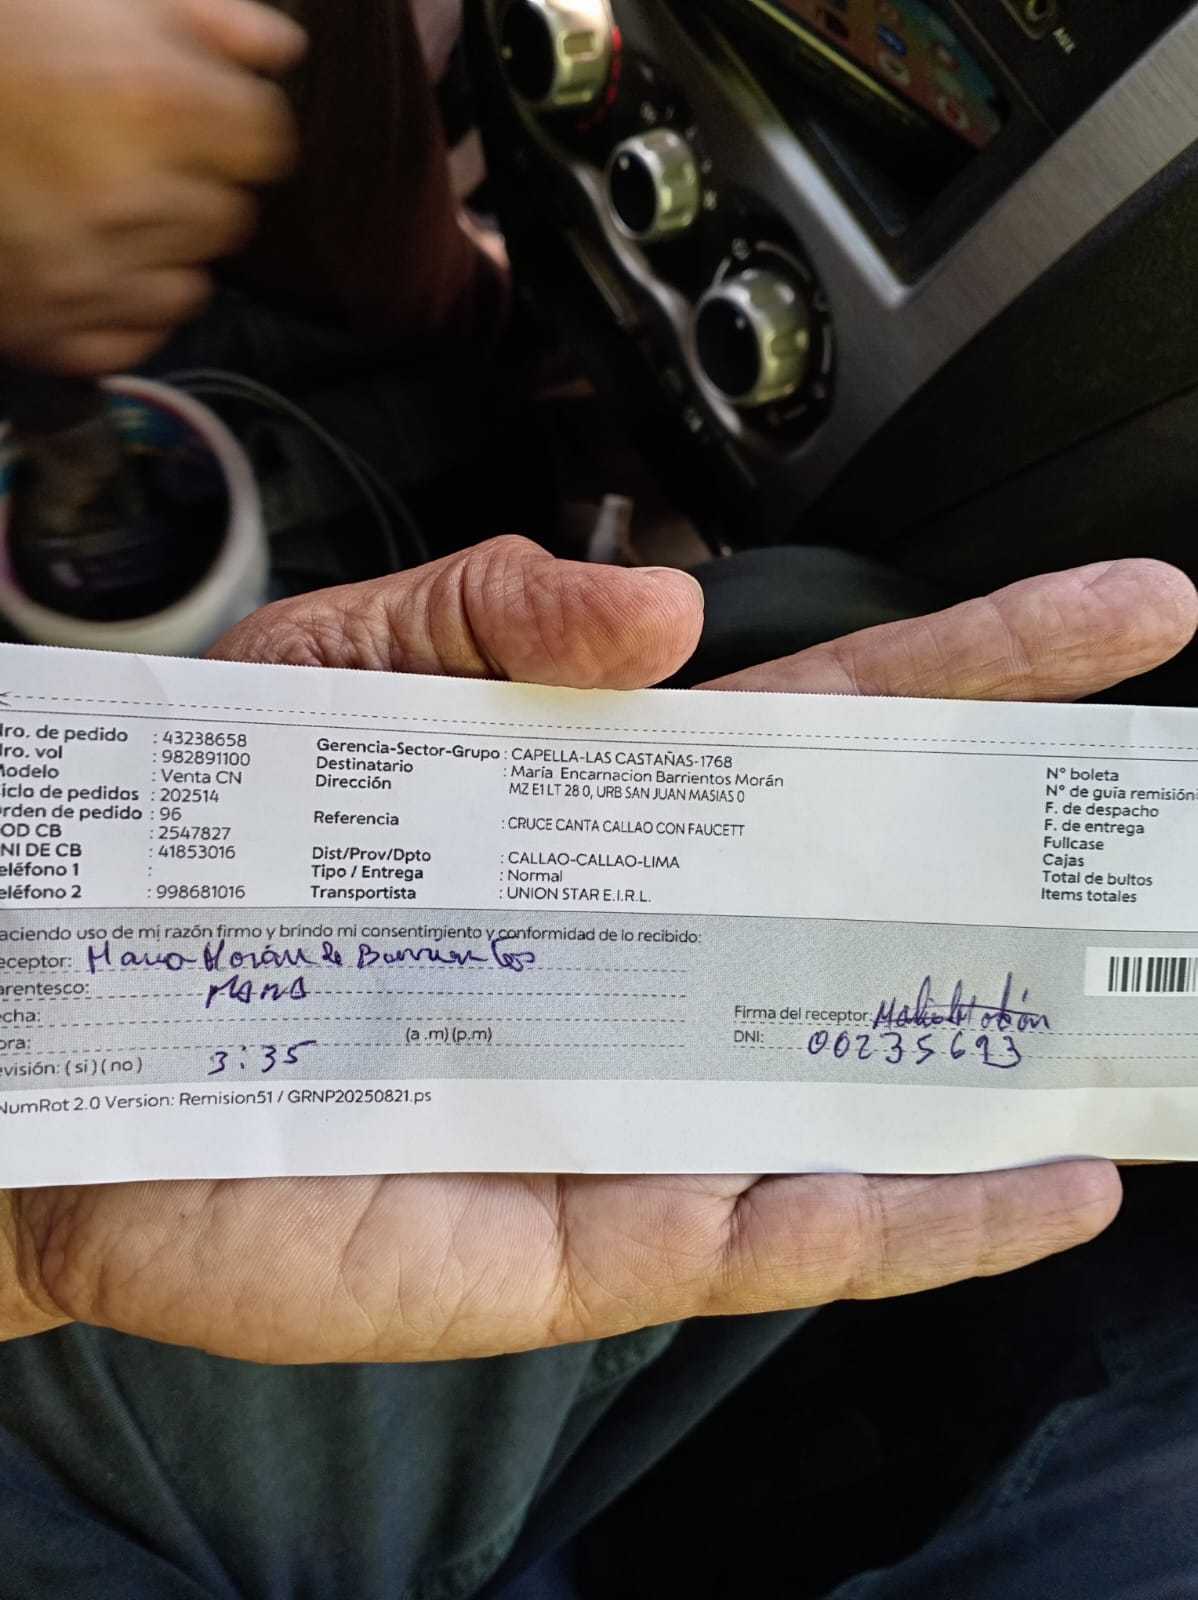 Nro. de pedido : 43238658
Nro. vol : 982891100
Modelo : Venta CN
Ciclo de pedidos : 202514
Orden de pedido : 96
COD CB : 2547827
DNI DE CB : 41853016
Teléfono 1 :
Teléfono 2 : 998681016
Gerencia-Sector-Grupo : CAPELLA-LAS CASTAÑAS-1768
Destinatario : María Encarnacion Barrientos Morán
Dirección MZ E1 LT 28 0, URB SAN JUAN MASIAS 0
Referencia : CRUCE CANTA CALLAO CON FAUCETT
Dist/Prov/Dpto : CALLAO-CALLAO-LIMA
Tipo / Entrega : Normal
Transportista : UNION STAR E.I.R.L.
N° boleta
N° de guía remisión
F. de despacho
F. de entrega
Fullcase
Cajas
Total de bultos
Items totales
aciendo uso de mi razón firmo y brindo mi consentimiento y conformidad de lo recibido:
eceptor: Maria Morán de Barrientos
arentesco: MAMA
echa:
ora: (a .m) (p.m)
evisión: ( si ) ( no ) 3:35
Firma del receptor: Maria Morán
DNI: 00235693
NumRot 2.0 Version: Remision51 / GRNP20250821.ps
AUX